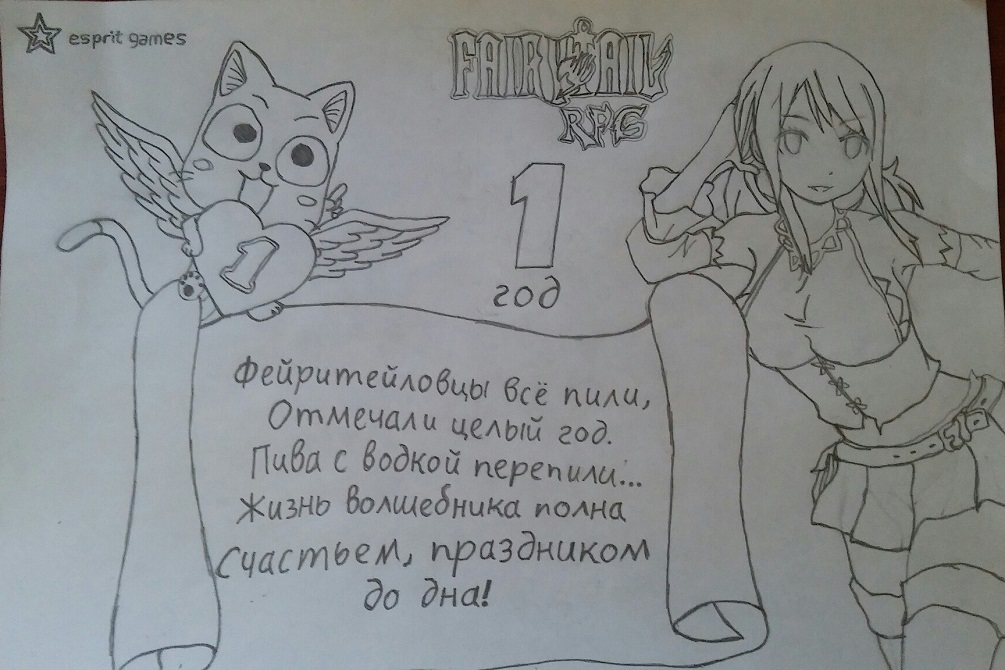 esprit games
FAIRY TAIL
RPG
1
год
1
Фейритейловцы всё пили,
Отмечали целый год.
Пива с водкой перепили...
Жизнь волшебника полна
Счастьем, праздником
до дна!